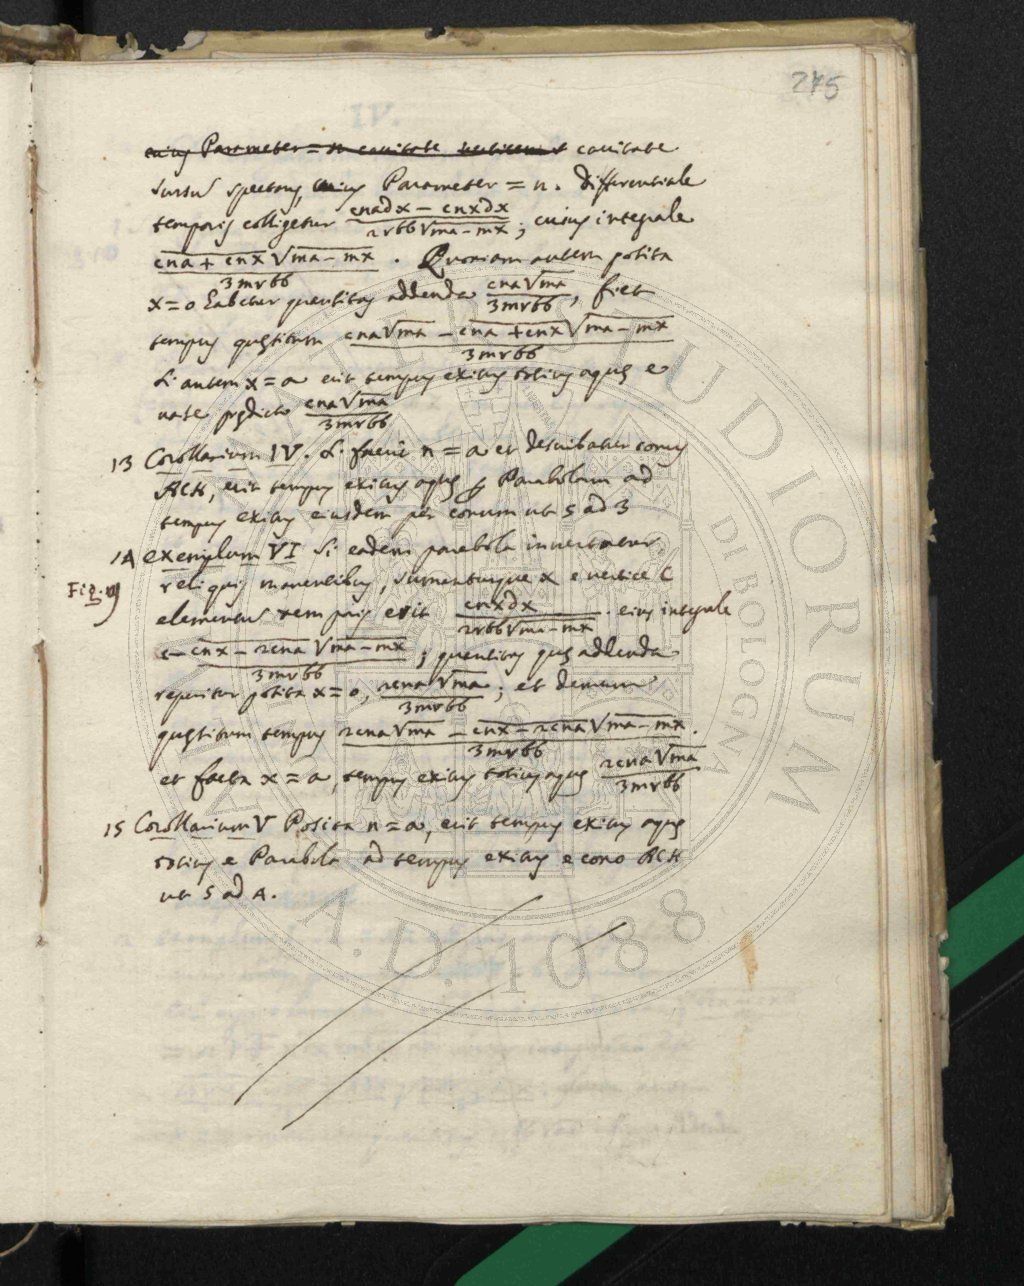 275
cuius Parameter = n cavitate verticem cavitate
sursu spectans, cuius Parameter = n. Differentiale
temporis colligetur cnadx − cnxdx / 2rbb√ma−mx ; cuius integrale
cna + cnx √ma−mx / 3mrbb . Quoniam autem posita
x=0 habetur quantitas addenda cna√ma / 3mrbb, fiet
tempus quęsitum cna√ma − cna + cnx √ma−mx / 3mrbb
Si autem x = a erit tempus exitus totius aquę e
vase prędicto cna√ma / 3mrbb
13 Corollarium IV. Si fuerit n = a et describatur conus
ACH, erit tempus exitus aquę Parabolam ad
tempus exitus eiusdem per conum ut 5 ad 3
14 Exemplum VI Si eadem parabola invertatur,
Fig.
reliquis manentibus, sumanturque x e vertice C
elementu temporis erit cnxdx / 2rbb√ma−mx . eius integrale
− cnx − 2cna √ma−mx / 3mrbb ; quantitas quę addenda
reperitur posita x=0, 2cna√ma / 3mrbb ; et demum
quęsitum tempus 2cna√ma − cnx − 2cna √ma−mx / 3mrbb .
et facta x = a, tempus exitus totius aquę 2cna√ma / 3mrbb
15 Corollarium V Posita n = a, erit tempus exitus aquę
totius e Parabola ad tempus exitus e cono ACH
ut 5 ad 4.
ALMA MATER STUDIORUM
A.D. 1088